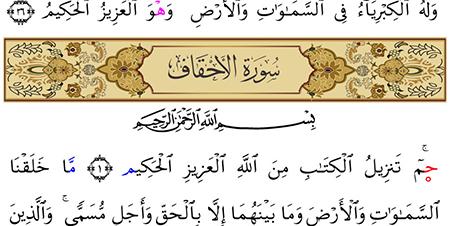 وَلَهُ الْكِبْرِيَآءُ فِي السَّمَٰوَٰتِ وَالْأَرْضِ وَهُوَ الْعَزِيزُ الْحَكِيمُ ﴿٣٦﴾
سُورَةُ الْأَحْقَافِ
بِسْمِ اللَّهِ الرَّحْمَٰنِ الرَّحِيمِ
حمٓ ۚ تَنزِيلُ الْكِتَٰبِ مِنَ اللَّهِ الْعَزِيزِ الْحَكِيمِ ﴿١﴾ مَّا خَلَقْنَا
السَّمَٰوَٰتِ وَالْأَرْضَ وَمَا بَيْنَهُمَا إِلَّا بِالْحَقِّ وَأَجَلٍ مُّسَمًّى ۚ وَالَّذِينَ